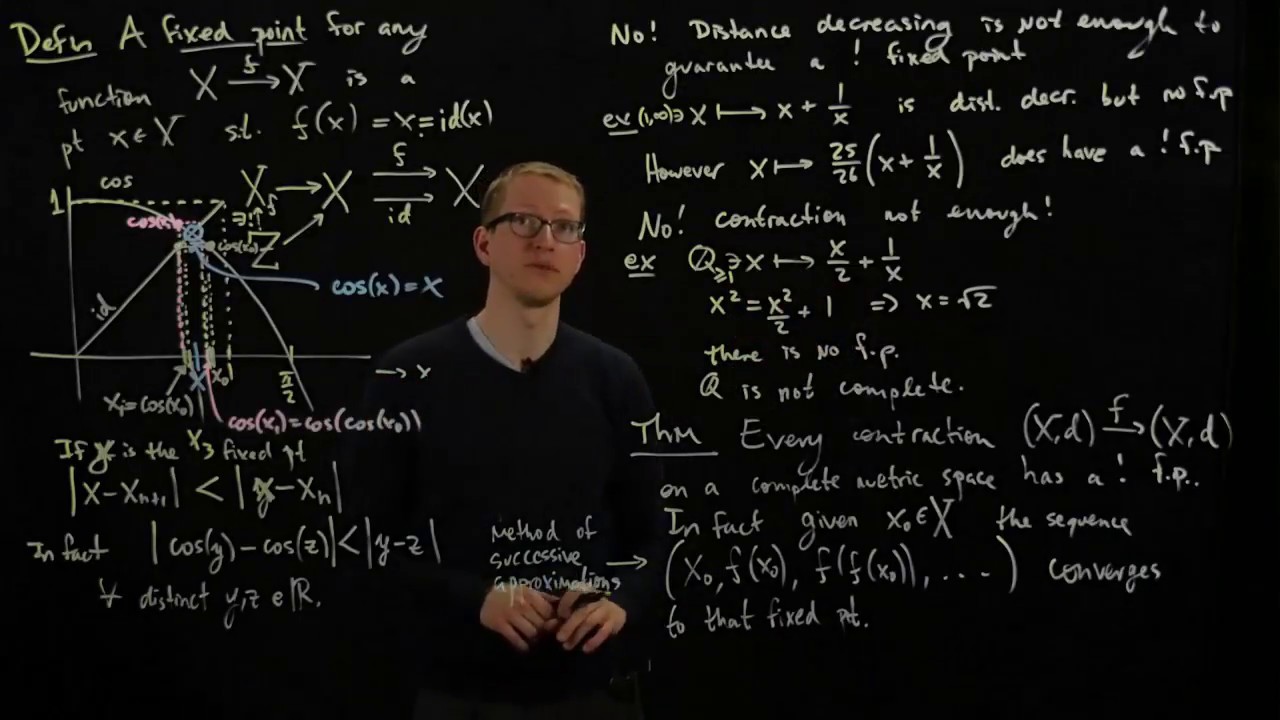 Defn A fixed point for any
function X →f X is a
pt x ∈ X s.t. f(x) = x = id(x)
X_f → X ⇉ X
f
id
∃! Z
1
cos
cos(x₁)
cos(x₀)
id
cos(x) = x
→ x
x
x₀
π/2
x₁ = cos(x₀)
cos(x₁) = cos(cos(x₀))
x₃
If x is the fixed pt
|x - xₙ₊₁| < |x - xₙ|
In fact |cos(y) - cos(z)| < |y - z|
∀ distinct y, z ∈ ℝ.
No! Distance decreasing is not enough to
guarantee a ! fixed point
ex (1,∞) ∋ x ↦ x + 1/x is dist. decr. but no f.p
However x ↦ 25/26 (x + 1/x) does have a ! f.p
No! contraction not enough!
ex ℚ≥1 ∋ x ↦ x/2 + 1/x
x² = x²/2 + 1 ⇒ x = √2
there is no f.p.
ℚ is not complete.
Thm Every contraction (X,d) →f (X,d)
on a complete metric space has a ! f.p..
In fact given x₀ ∈ X the sequence
Method of
successive
approximations →
(x₀, f(x₀), f(f(x₀)), ....) converges
to that fixed pt.